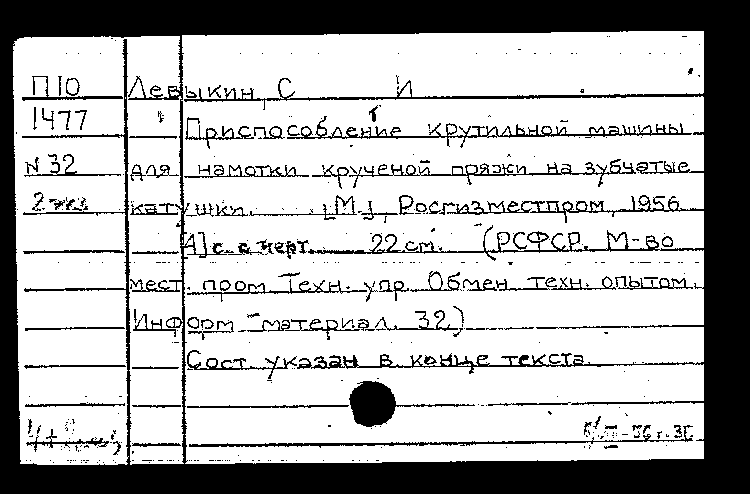 П10 Левыкин, С И
1477 Приспособление крутильной машины
N 32 для намотки крученой пряжи на зубчатые
2 экз катушки. [М.], Росгизместпром, 1956
4] с. с черт. 22 см. (РСФСР. М-во
мест. пром. Техн. упр. Обмен техн. опытом.
Информ материал. 32)
Сост указан в конце текста
-56 г.